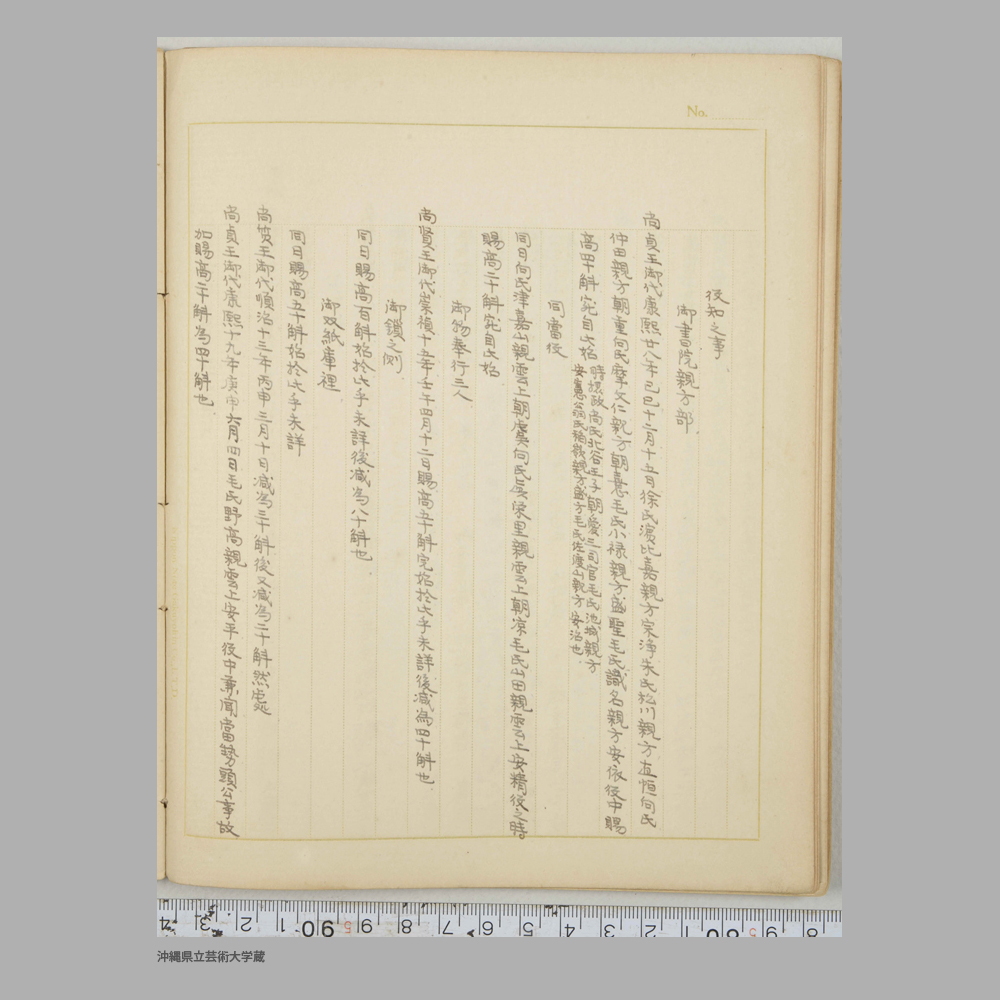 No.
役知之事
御書院親方部
尚貞王御代康熙廿八年己巳十二月十五日徐氏濱比嘉親方宗淨朱氏松川親方直恒向氏
仲田親方朝重向氏摩文仁親方朝憲毛氏小禄親方盛聖毛氏識名親方安依役中賜
高四十斛宛自此始
時認政尚氏北谷王子朝愛三司官毛氏池城親方
安憲翁氏稲嶺親方盛方毛氏佐渡山親方安治也
同當役
同日向氏津嘉山親雲上朝虞向氏與儀里親雲上朝凉毛氏山田親雲上安精役之時
賜高二十斛宛自此始
御物奉行三人
尚賢王御代崇禎十五年壬午四月十二日賜高五十斛宛始於此乎未詳後减為四十斛也
御鎖之側
同日賜高百斛始於此乎未詳後减為八十斛也
御双紙庫裡
同日賜高五十斛始於此乎未詳
尚質王御代順治十三年丙申三月十日减為三十斛後又减為二十斛然処
尚貞王御代康熙十九年庚申六月四日毛氏野高親雲上安平役中兼聞當勢頭公事故
加賜高二十斛為四十斛也
4 3 2 1 90 9 8 7 6 5 4 3 2 1 80 9 8
沖縄県立芸術大学蔵